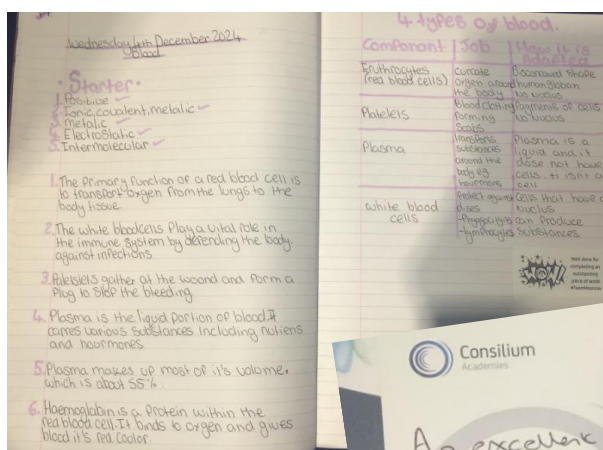 Wednesday 4th December 2024
Blood
·Starter·
1. Positive
2. Ionic, covalent, metalic
3. Metalic
4. Electrostatic
5. Intermolecular
1. The primary function of a red blood cell is
to transport oxygen from the lungs to the
body tissue.
2. The white bloodcells play a vital role in
the immune system by defending the body
against infections
3. Platelets gather at the woond and form a
plug to stop the bleeding
4. Plasma is the liquid portion of blood. It
carres various substances including nutiens
and hourmones
5. Plasma makes up most of it's volume.
which is about 55%.
6. Haemoglabin is a protein within the
red blood cell. It binds to oxgen and gives
blood it's red coolor.
4 types of blood.
Componant | Job | How it is adapted
Erythrocytes
(red blood cells)
organ around
the body
shape
no nuclus
Platelets
blood clotting
forming
scabs
fragments of cells
no nuclus
Plasma
transports
substances
around the
body eg
hourmons
Plasma is a
liquid and it
dose not have
cells. it isnt a
cell
white blood
cells
Protect against
-lymphocytes
Cells that have a
nuclus
can produce
substances
WOW!
Well done for
completing an
outstanding
piece of work!
Consilium
Academies
An excellent